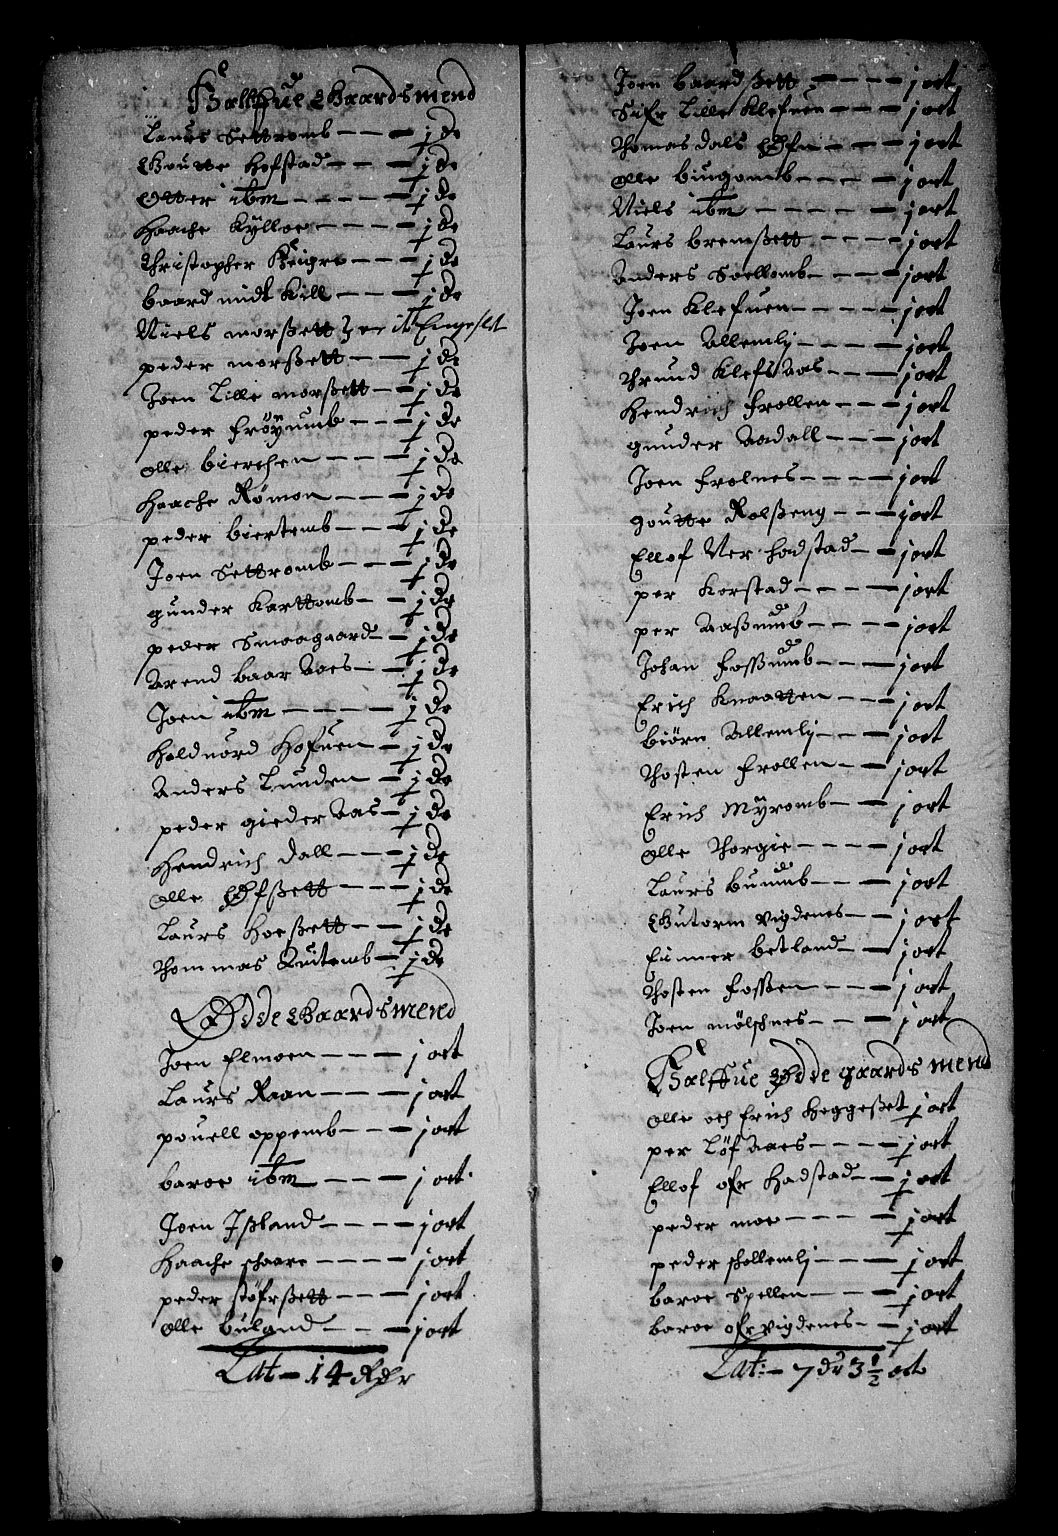 Halffue Gaardsmend
Laurs Settromb - - - j dr
Goutte Hofstad - - - j dr
Otter ibm - - - - - j dr
Haache Kylloe - - - - j dr
Christopher Krigre - - - j dr
baard midt Kill - - - j dr
Niels morßett
peder morßett - - - j dr
Joen Lille morßett - - j dr
peder Frøÿnumb - - - j dr
olle bierchen - - - - j dr
Haache Rømon - - - - j dr
peder biertemb - - - j dr
Joen Settromb - - - - j dr
gunder Karttomb - - j dr
peder Smaagaard - - j dr
Arend baar Aaes - - - j dr
Joen ibm - - - - - j dr
Halduord Hofuen - j dr
Anders Lunden - - j dr
peder gieder Aas - j dr
Hendrich dall - - - j dr
olle Hofßett - - - j dr
Laurs Hoeßett - - - j dr
Thommas Quitemb - j dr
Ødde Gaardsmend
Joen Elmoen - - - - j ort
Laurs Raan - - - - j ort
pouell oppemb - - - j ort
baroe ibm - - - - j ort
Joen Ißland - - - - - j ort
Haache schaare - - - - j ort
peder støfrßett - - - - j ort
olle buland - - - - j ort
Lat - 14 Rdr
Joen baardßett - - - - j ort
Sifr Lille Klefuen - - - j ort
Thomas dals - - - j ort
olle biugomb - - - - - j ort
Niels ibm - - - - - - j ort
Laurs bremßett - - - - j ort
Anders Soellomb - - - j ort
Joen Klefuen - - - - j ort
Joen Allemlj - - - - j ort
Thrund Klefs Aas - - - j ort
Hendrich Frollen - - - j ort
gunder Aadall - - - j ort
Joen Frolnes - - - - j ort
goutte Rolßeng - - - j ort
Ellof Ner Hadstad - - j ort
per Korstad - - - - - j ort
per Aaßmub - - - - j ort
Johan Foßmub - - - j ort
Erich Knaatten - - - j ort
biørn Allemlj - - - j ort
Thosten Frollen - - - j ort
Erich Mÿromb - - j ort
olle Thorgie - - - - j ort
Laurs buumb - - - j ort
Gutorm vigdenes - - j ort
Einner betland - - j ort
Thosten Foßen - - - j ort
Joen mølschnes - - - j ort
Halffue Ødde gaards mend
olle och Erich Heggeßet j ort
per Løf Aaes - - - - - j ort
Ellof ofr Hadstad - - j ort
peder moe - - - - - j ort
peder schollemlj - - - j ort
baroe Spellen - - - - j ort
baroe ofr vigdenes - - j ort
Lat: - 7 dr 3 1/2 ort